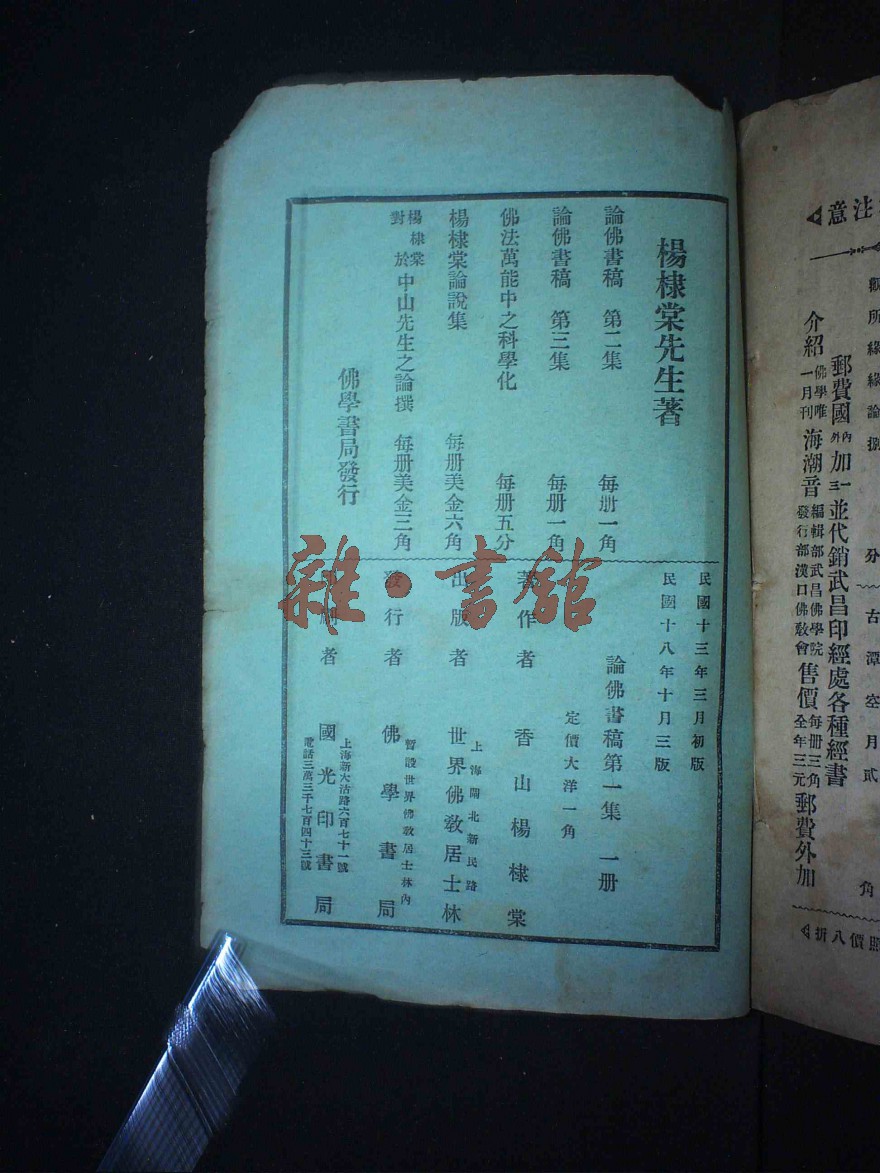 楊棣棠先生著
論佛書稿 第二集 每册一角
論佛書稿 第三集 每册一角
佛法萬能中之科學化 每册五分
楊棣棠論說集 每册美金六角
楊棣棠對於中山先生之論撰 每册美金三角
佛學書局發行
民國十三年三月初版
民國十八年十月三版
論佛書稿第一集 一册
定價大洋一角
著作者 香山楊棣棠
出版者 上海閘北新民路 世界佛教居士林
發行者 暫設世界佛教居士林內 佛學書局
印刷者 上海新大沽路六百七十一號 電話三萬三千七百四十三號 國光印書局
雜·書舘
注意
觀所緣緣論 捌分
古潭空月 貳角
郵費國內外加一三並代銷武昌印經處各種經書
介紹佛學唯一月刊海潮音 編輯部武昌佛學院 發行部漢口佛教會 售價每册三角全年三元郵費外加
照價八折